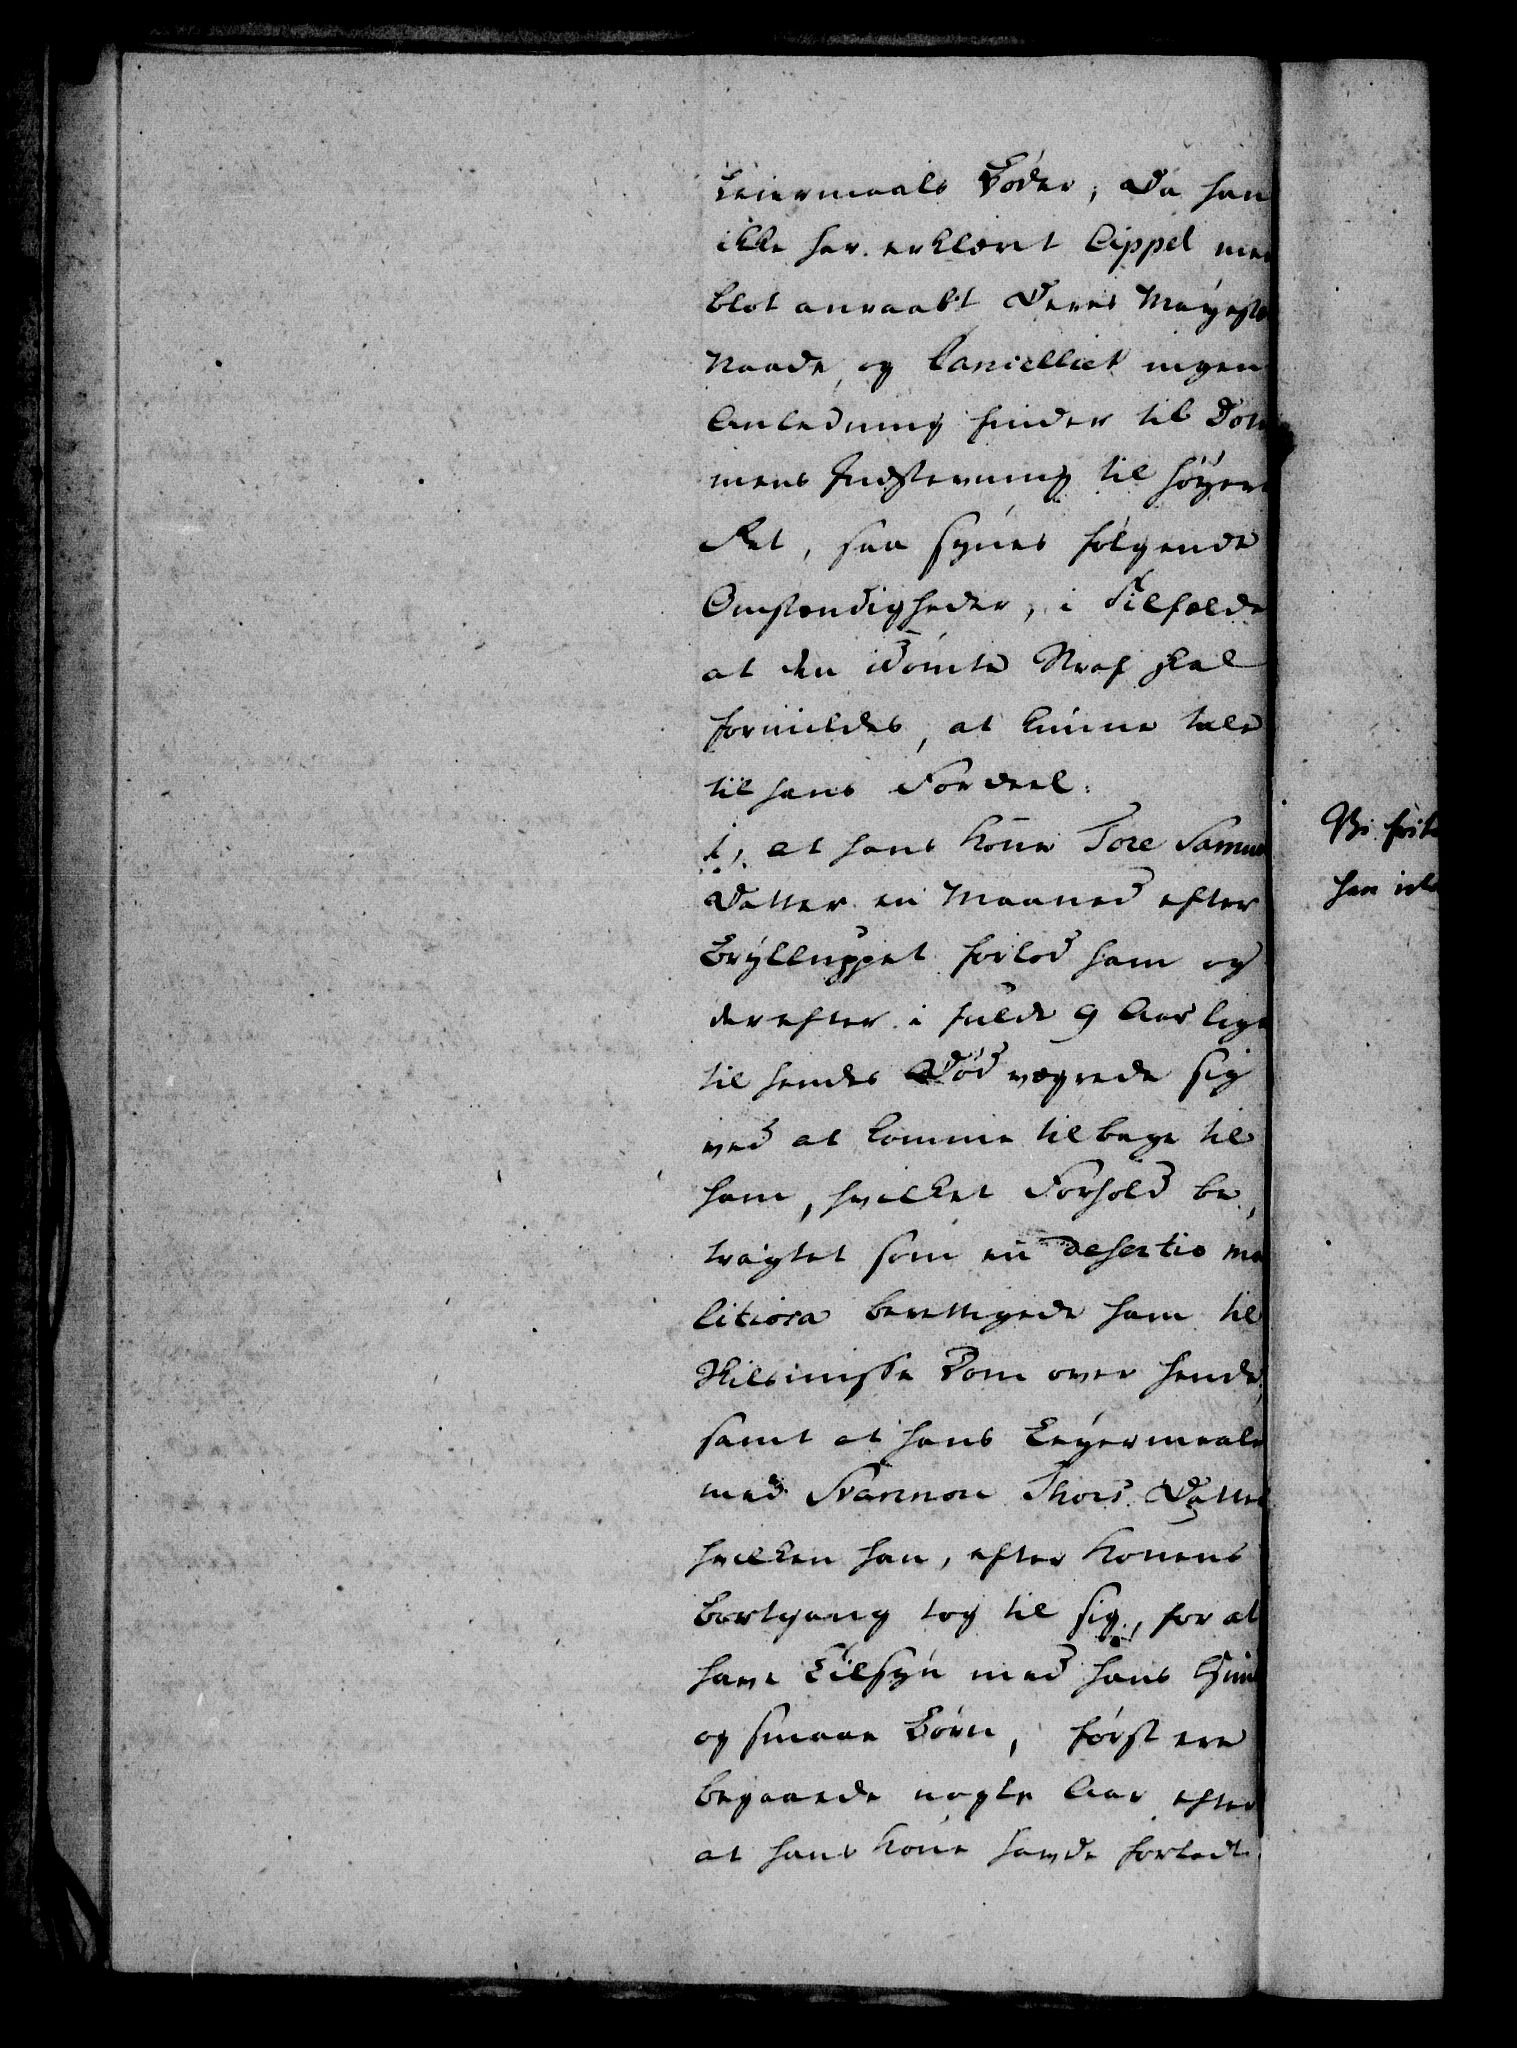 Leiermaals Bøder; Da han
ikke har erklæret Appel men
blot anraabt Deres Mayestæ
Naade, og Cancelliet ingen
Anledning finder til Dom
mens Indstevning til høyest
Ret, saa synes følgende
Omstændigheder, i Tilfælde
at den idømte Straf skal
formildes, at kunne tale
til hans Fordeel:
1, at hans Kone Tore Samuels
Datter en Maaned efter
Brylluppet forlod ham og
derefter i fulde 9 Aar lige
til hendes Død vægrede sig
ved at komme tilbage til
ham, hvilket Forhold be
tragtet som en desertio ma
litiosa berettigede ham til
Skilsmisse Dom over hende,
samt at hans Leyermaale
med Thors Datter
hvilken han, efter Konens
Bortgang tog til sig, for at
have Tilsyn med hans Huus
og smaae Børn, først ere
begaaede nogle Aar efter
at hans Kone havde forladt
Vi
han